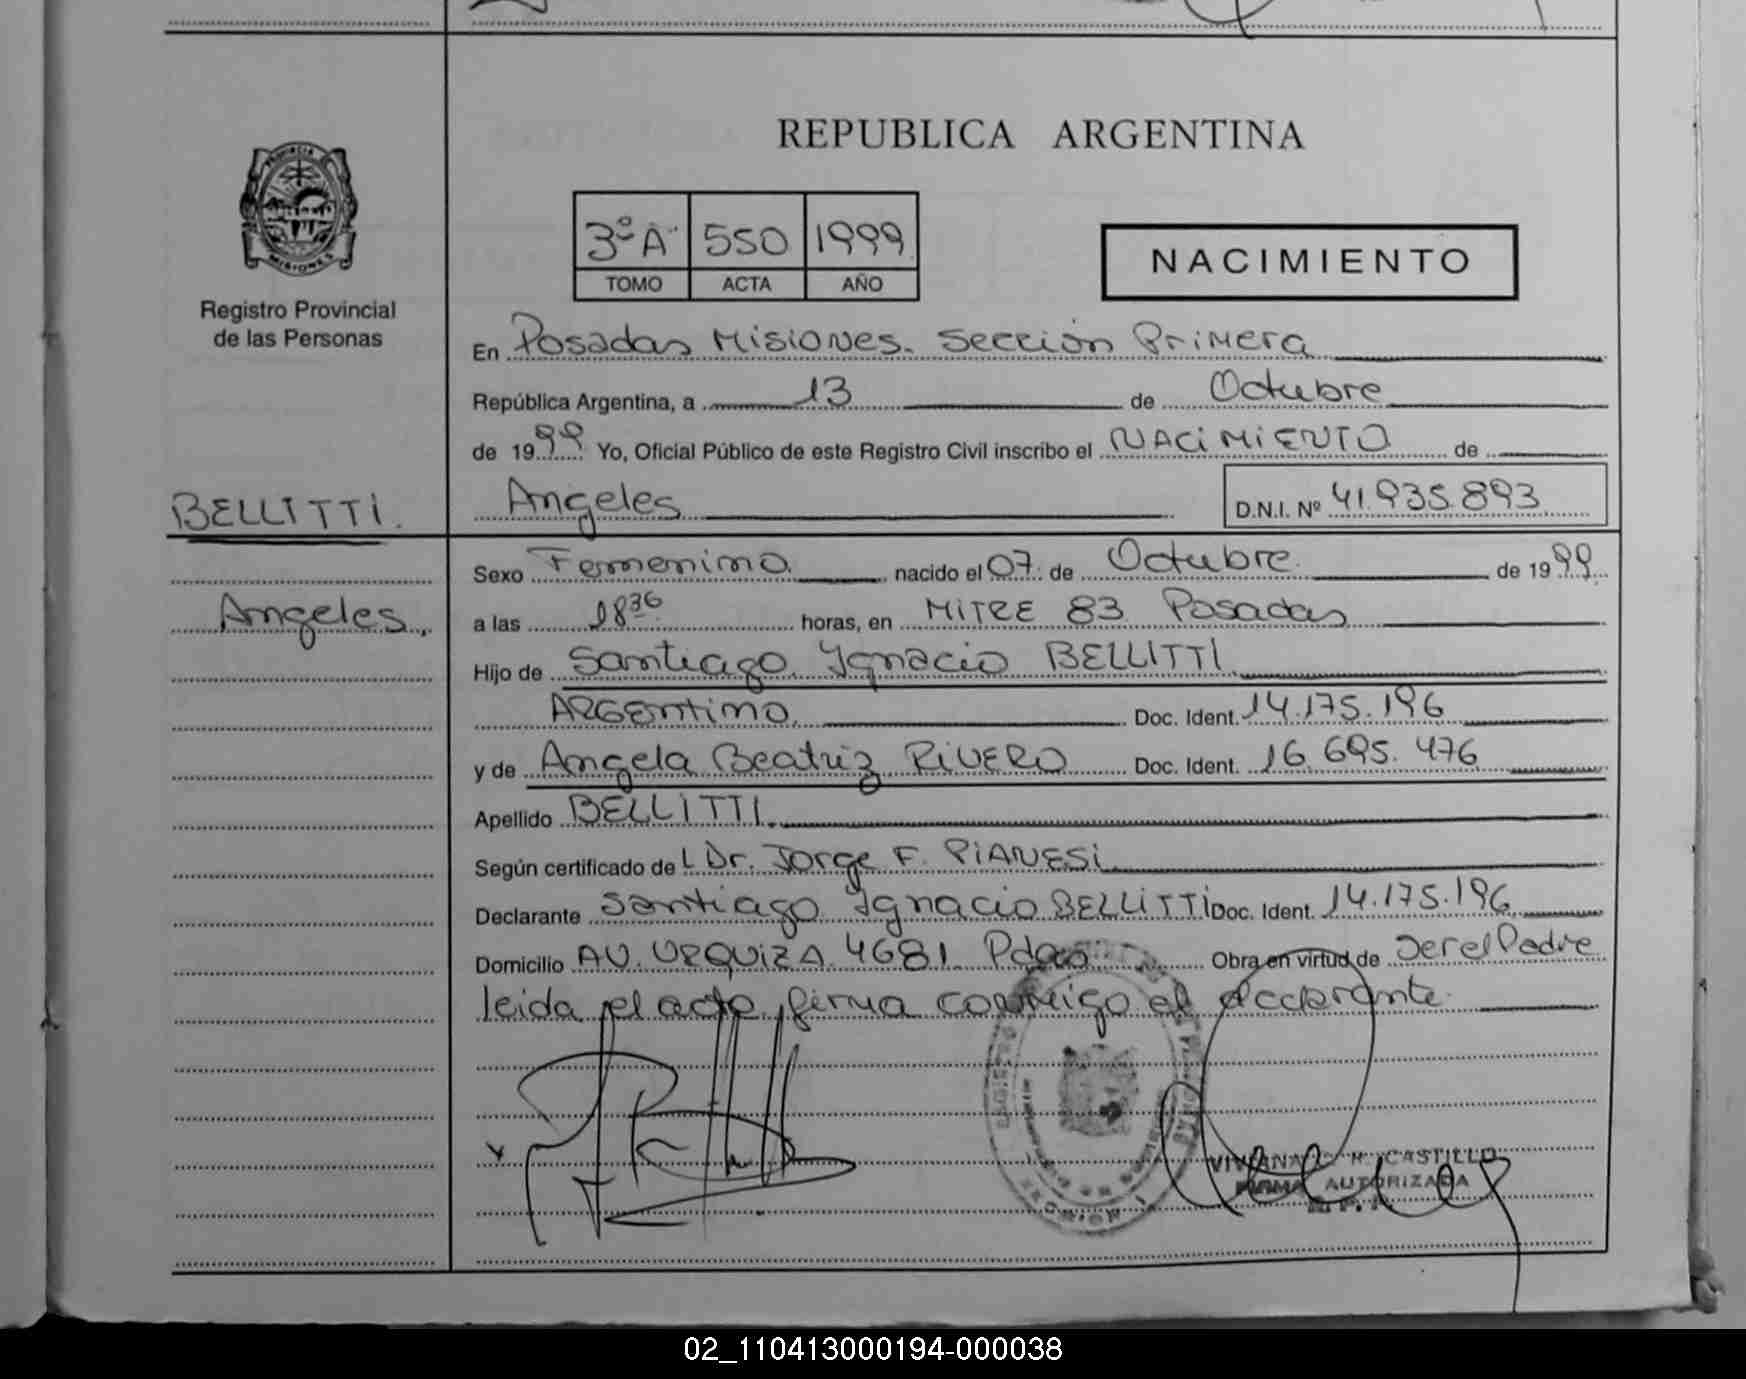 REPUBLICA ARGENTINA
PROVINCIA DE
MISIONES
Registro Provincial
de las Personas
3º A 550 1999
TOMO ACTA AÑO
NACIMIENTO
En Posadas Misiones. Sección Primera
República Argentina, a 13 de Octubre
de 1999 Yo, Oficial Público de este Registro Civil inscribo el NACIMIENTO de
BELLITTI. Angeles D.N.I. Nº 41.935.893
Sexo Femenino. nacido el 07. de Octubre. de 1999.
Angeles. a las 18 36 horas, en MITRE 83 Posadas
Hijo de Santiago Ygnacio BELLITTI
ARGENTINO. Doc. Ident. 14.175.196
y de Angela Beatriz RIVERO Doc. Ident. 16.695.476
Apellido BELLITTI.
Según certificado de L Dr. Jorge F. PIANESI
Declarante Santiago Ygnacio BELLITTI Doc. Ident. 14.175.196
Domicilio AV. URQUIZA 4681 Pdas Obra en virtud de Ser el Padre
leida el acta, firma conmigo el declarante.
CASTILLO
FIRMA AUTORIZADA
02_110413000194-000038